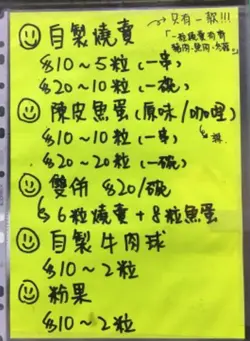 自製燒賣
→只有一款!!!
「一粒燒賣有齊
豬肉、魚肉、
$10～5粒(一串)
$20～10粒(一碗)
陳皮魚蛋(原味/咖哩)
$10～10粒(一串)
辣
$20～20粒(一碗)
雙併 $20/碗
6粒燒賣+8粒魚蛋
自製牛肉球
$10～2粒
粉果
$10～2粒